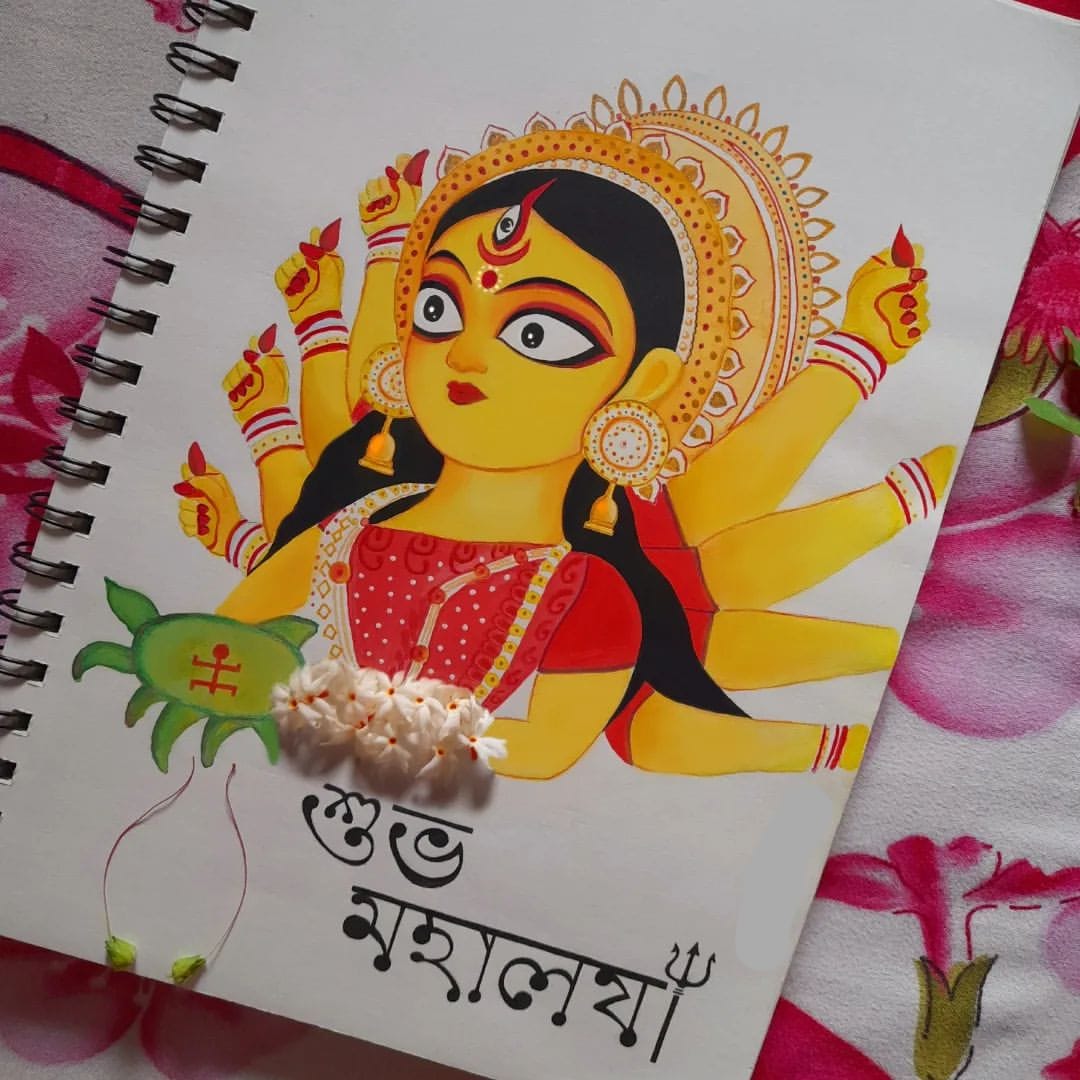 শুভ
মহালয়া